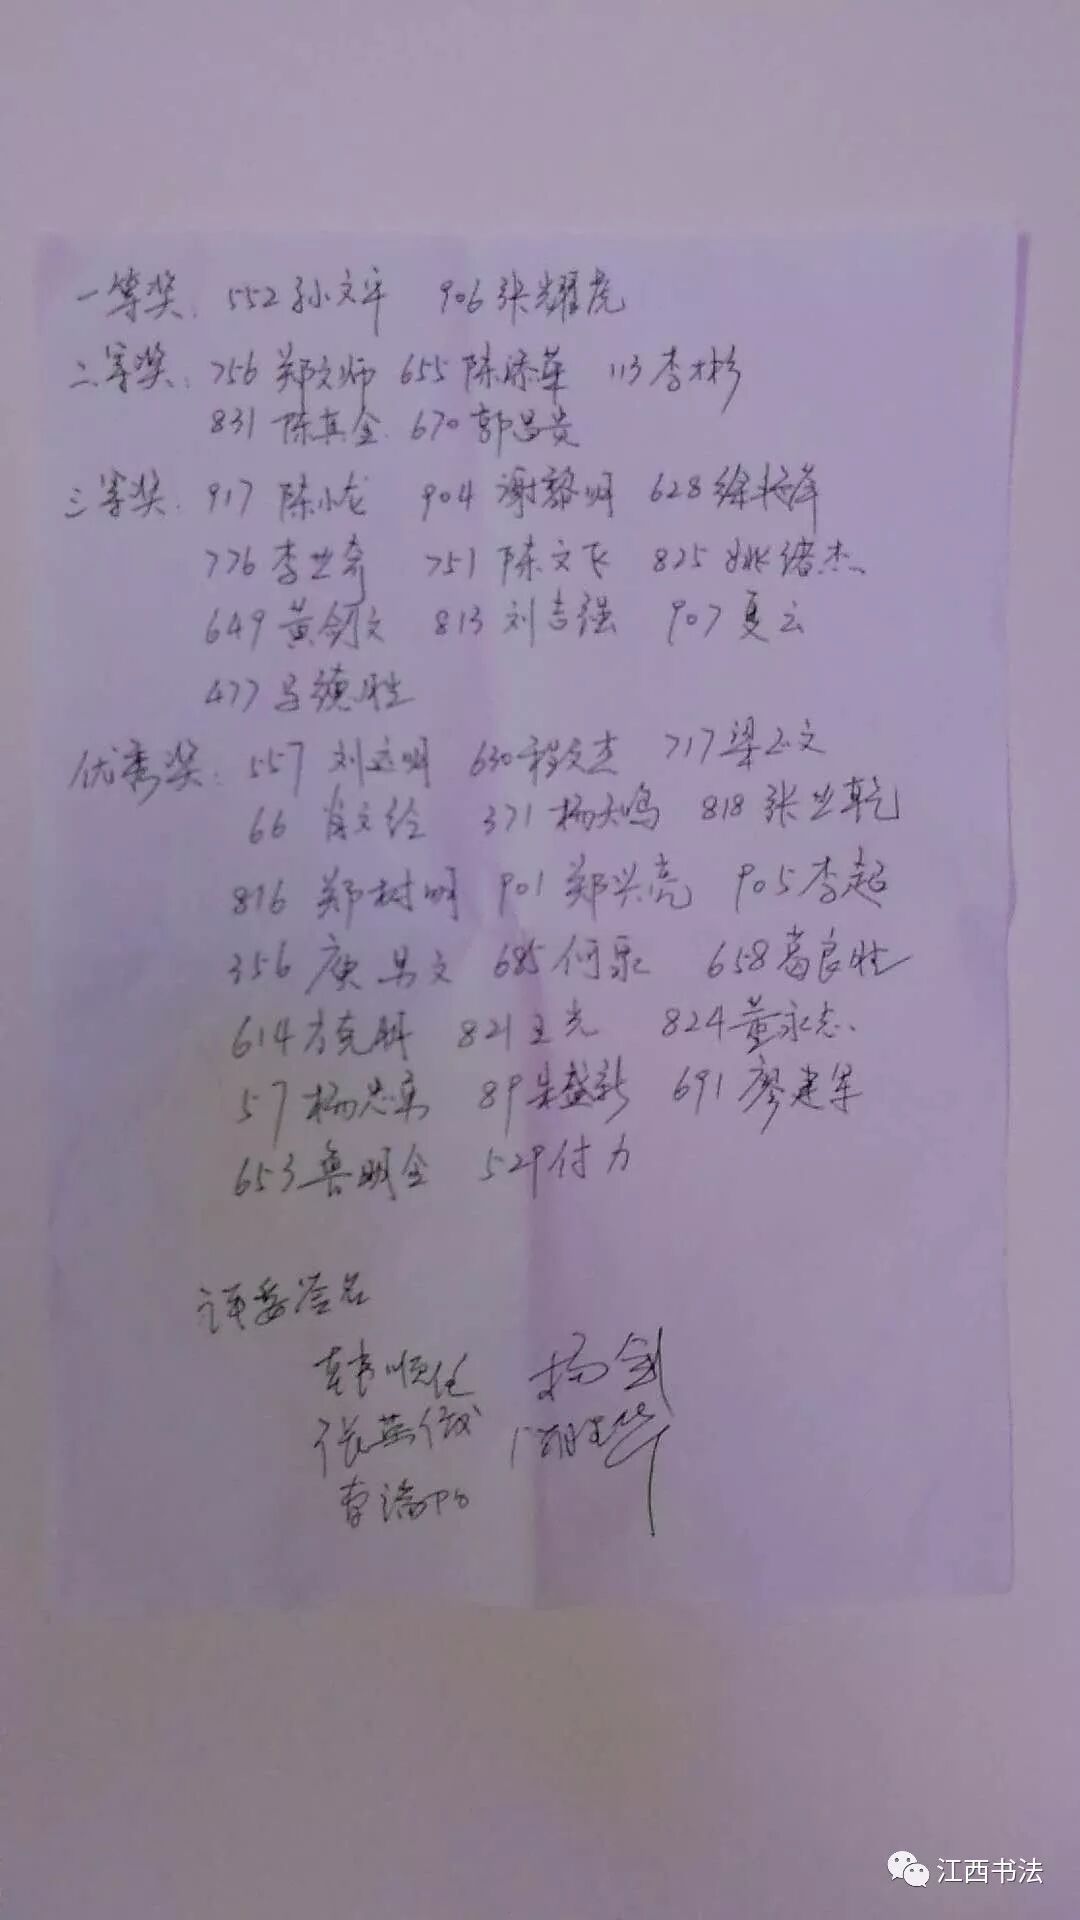 一等奖：552 孙文平 906 张耀虎
二等奖：756 郑文师 655 陈添华 113 李彬
831 陈真金 670 郭昌贵
三等奖：917 陈小龙 904 谢黎明 628 徐
776 李世奇 751 陈文飞 825 姚绪杰
649 黄剑文 813 刘吉强 907 夏云
477 马德胜
优秀奖：557 刘远明 630 程文杰 717 梁正文
66 肖文 371 杨天鸣 818 张世乾
816 郑树明 901 郑兴亮 905 李超
356 易文 685 何乐 658 葛良胜
614 方克 821 王光 824 董永志
57 杨忠 89 朱盛新 691 廖建军
653 鲁明金 529 付力
评委签名
韩顺任 杨剑
张 华
李
江西书法